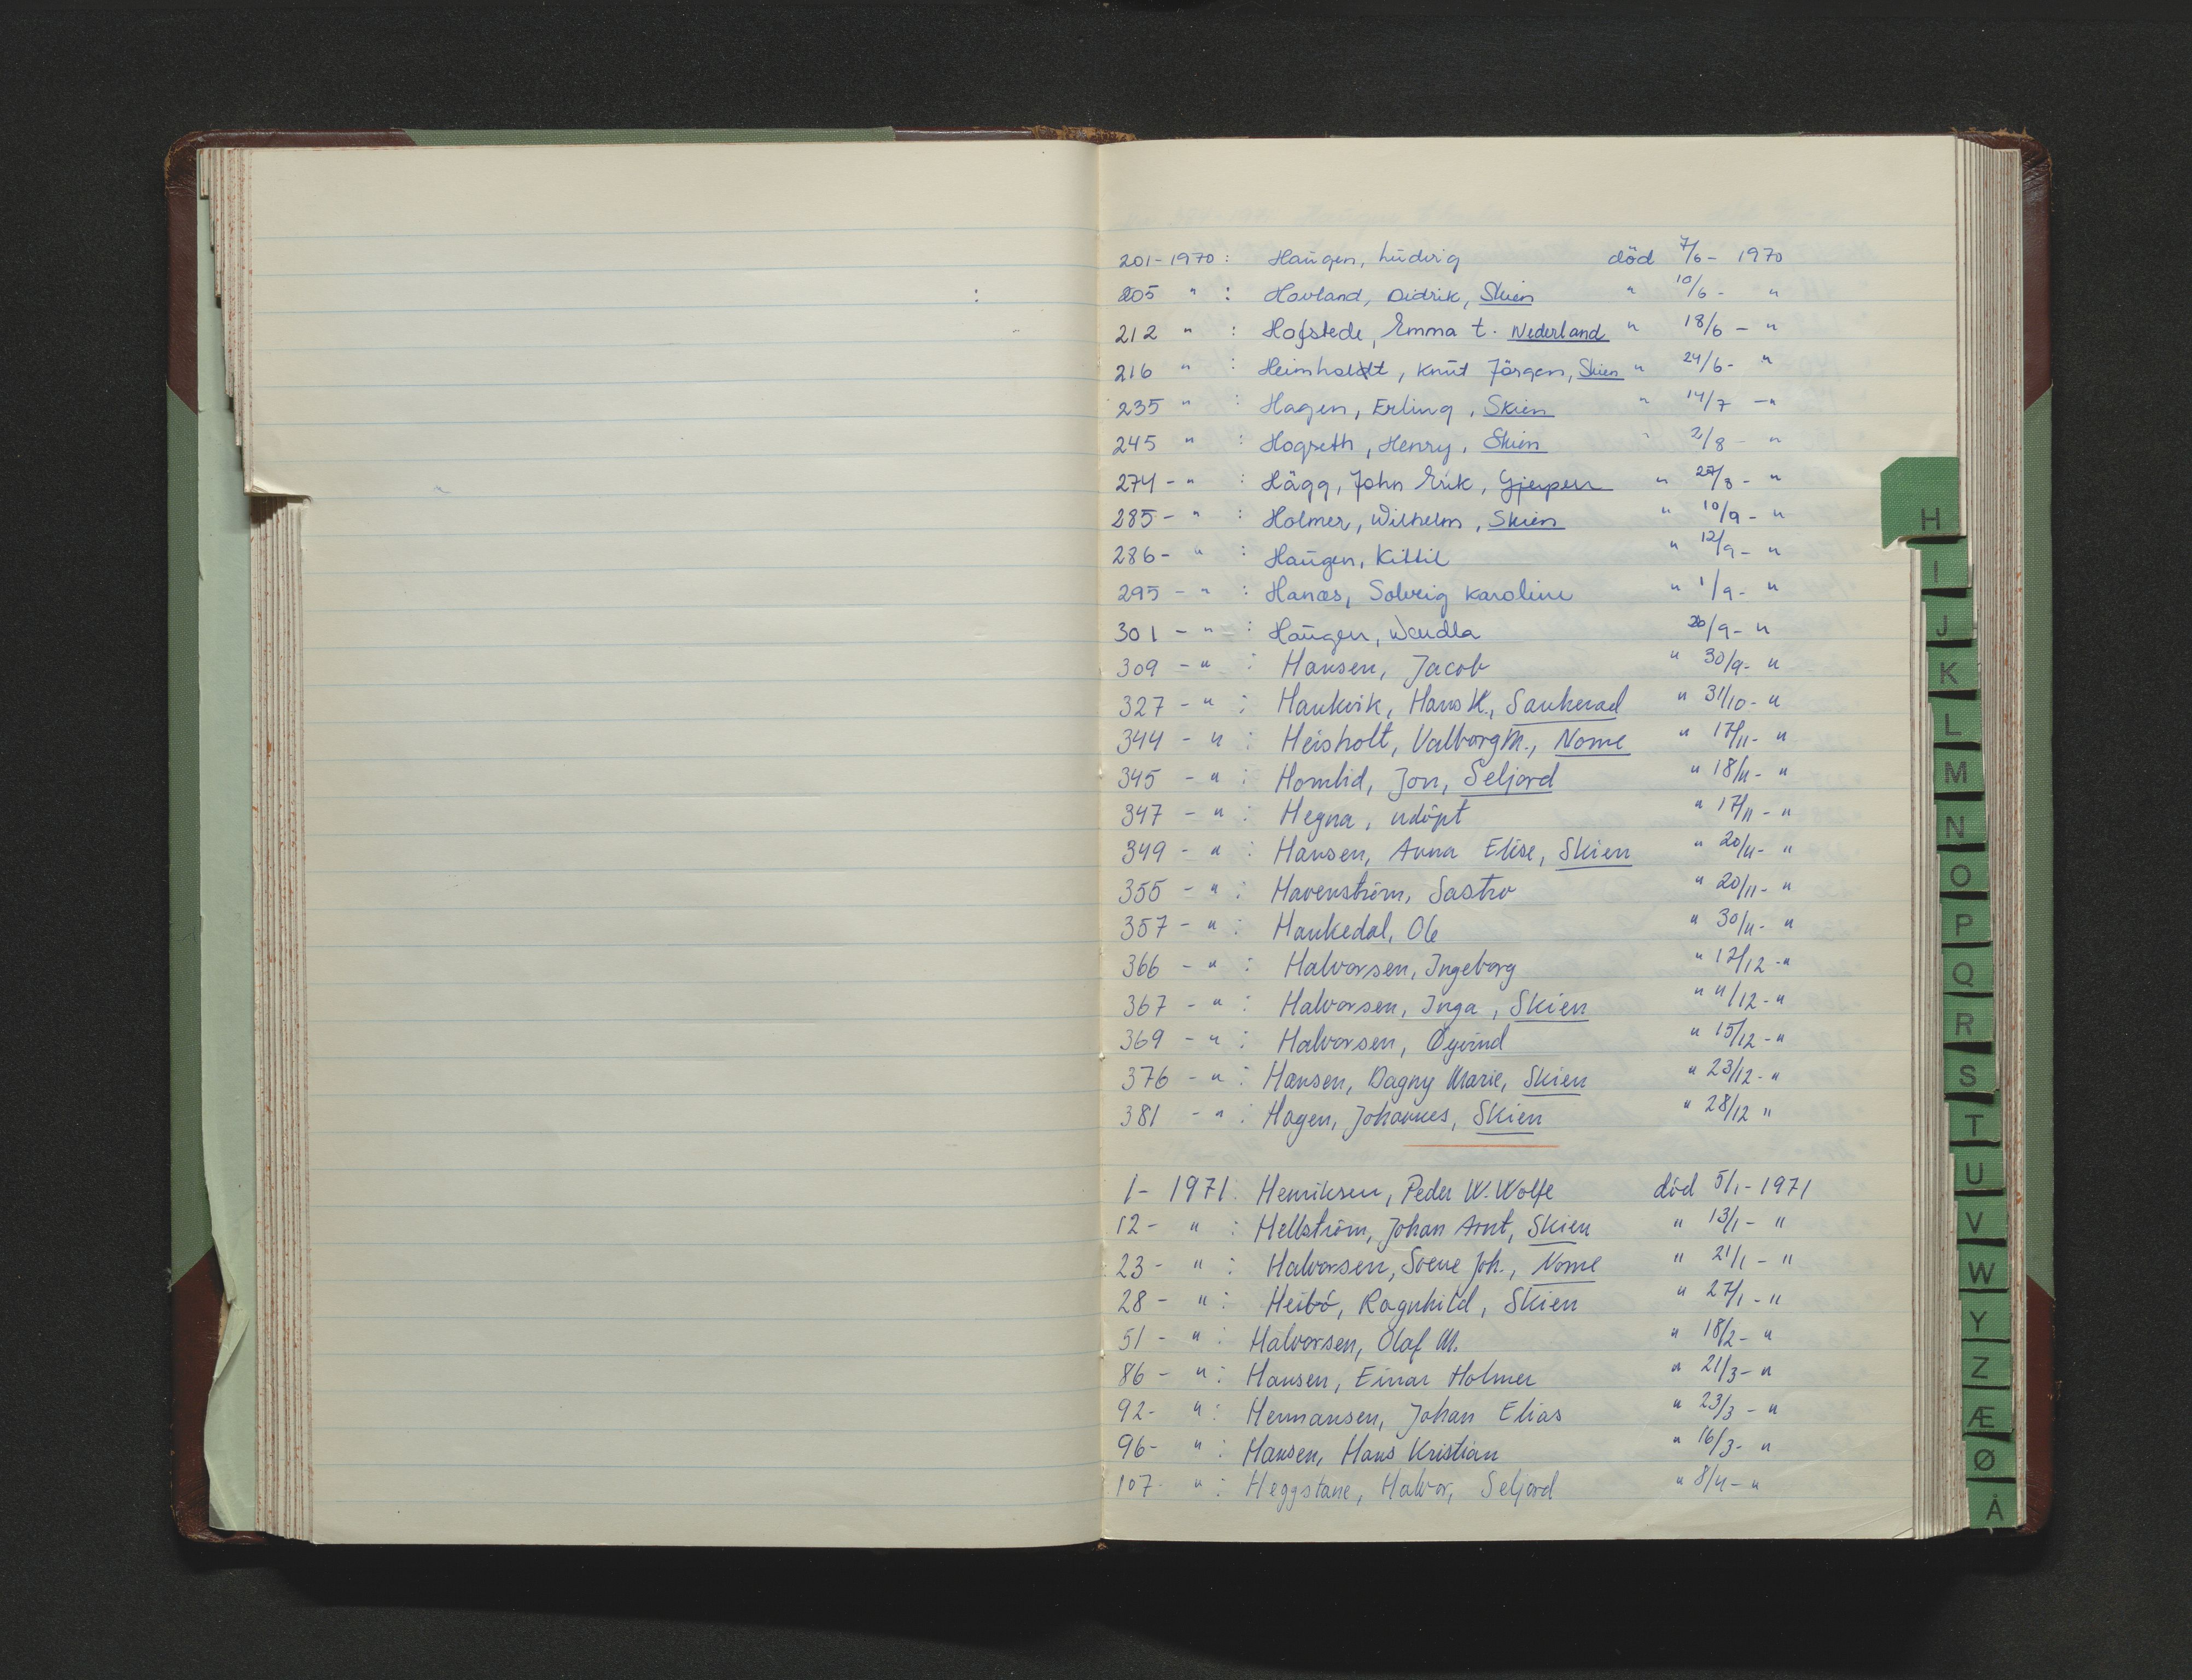 201-1970: Haŭgen, Lŭdvig död 7/6 - 1970
205 " : Hovland, Didrik, Skien " 10/6 - "
212 " : Hofstede, Emma t. Nederland " 18/6 - "
216 " : Heimholdt, Knŭt Jörgen, Skien " 24/6 - "
235 " : Hagen, Erling, Skien " 14/7 - "
245 " : Hogseth, Henry, Skien " 2/8 - "
274 - " : Hägg, John Erik, Gjerpen " 27/8 - "
285 - " : Holmer, Wilhelm, Skien " 10/9 - "
286 - " : Haŭgen, Kittil " 12/9 - "
295 - " : Hanæs, Solveig Karoline " 1/9 - "
301 - " : Haŭgen, Wendla 26/9 - "
309 - " : Hansen, Jacob " 30/9 - "
327 - " : Haukvik, Hans K., Sauherad " 31/10 - "
344 - " : Heisholt, Valborg M., Nome " 17/11 - "
345 - " : Homlid, Jon, Seljord " 18/11 - "
347 - " : Hegna, udöpt " 17/11 - "
349 - " : Hansen, Anna Elise, Skien " 20/11 - "
355 - " : Havenström, Sastro " 20/11 - "
357 - " : Haukedal, Ole " 30/11 - "
366 - " : Halvorsen, Ingeborg " 17/12 - "
367 - " : Halvorsen, Inga, Skien " 11/12 - "
369 - " : Halvorsen, Øyvind " 15/12 - "
376 - " : Hansen, Dagny Marie, Skien " 23/12 - "
381 - " : Hagen, Johannes, Skien " 28/12 "
1 - 1971: Henriksen, Peder W. Wolfe död 5/1 - 1971
12 - " : Hellström, Johan Arnt, Skien " 13/1 - "
23 - " : Halvorsen, Svene Joh., Nome " 21/1 - "
28 - " : Heibö, Ragnhild, Skien " 27/1 - "
51 - " : Halvorsen, Olaf M. " 18/2 - "
86 - " : Hansen, Einar Holmer " 21/3 - "
92 - " : Hermansen, Johan Elias " 23/3 - "
96 - " : Hansen, Hans Kristian " 16/3 - "
107 " : Heggstane, Halvor, Seljord " 8/4 - "
H
I
J
K
L
M
N
O
P
Q
R
S
T
U
V
W
Y
Z
Æ
Ø
Å